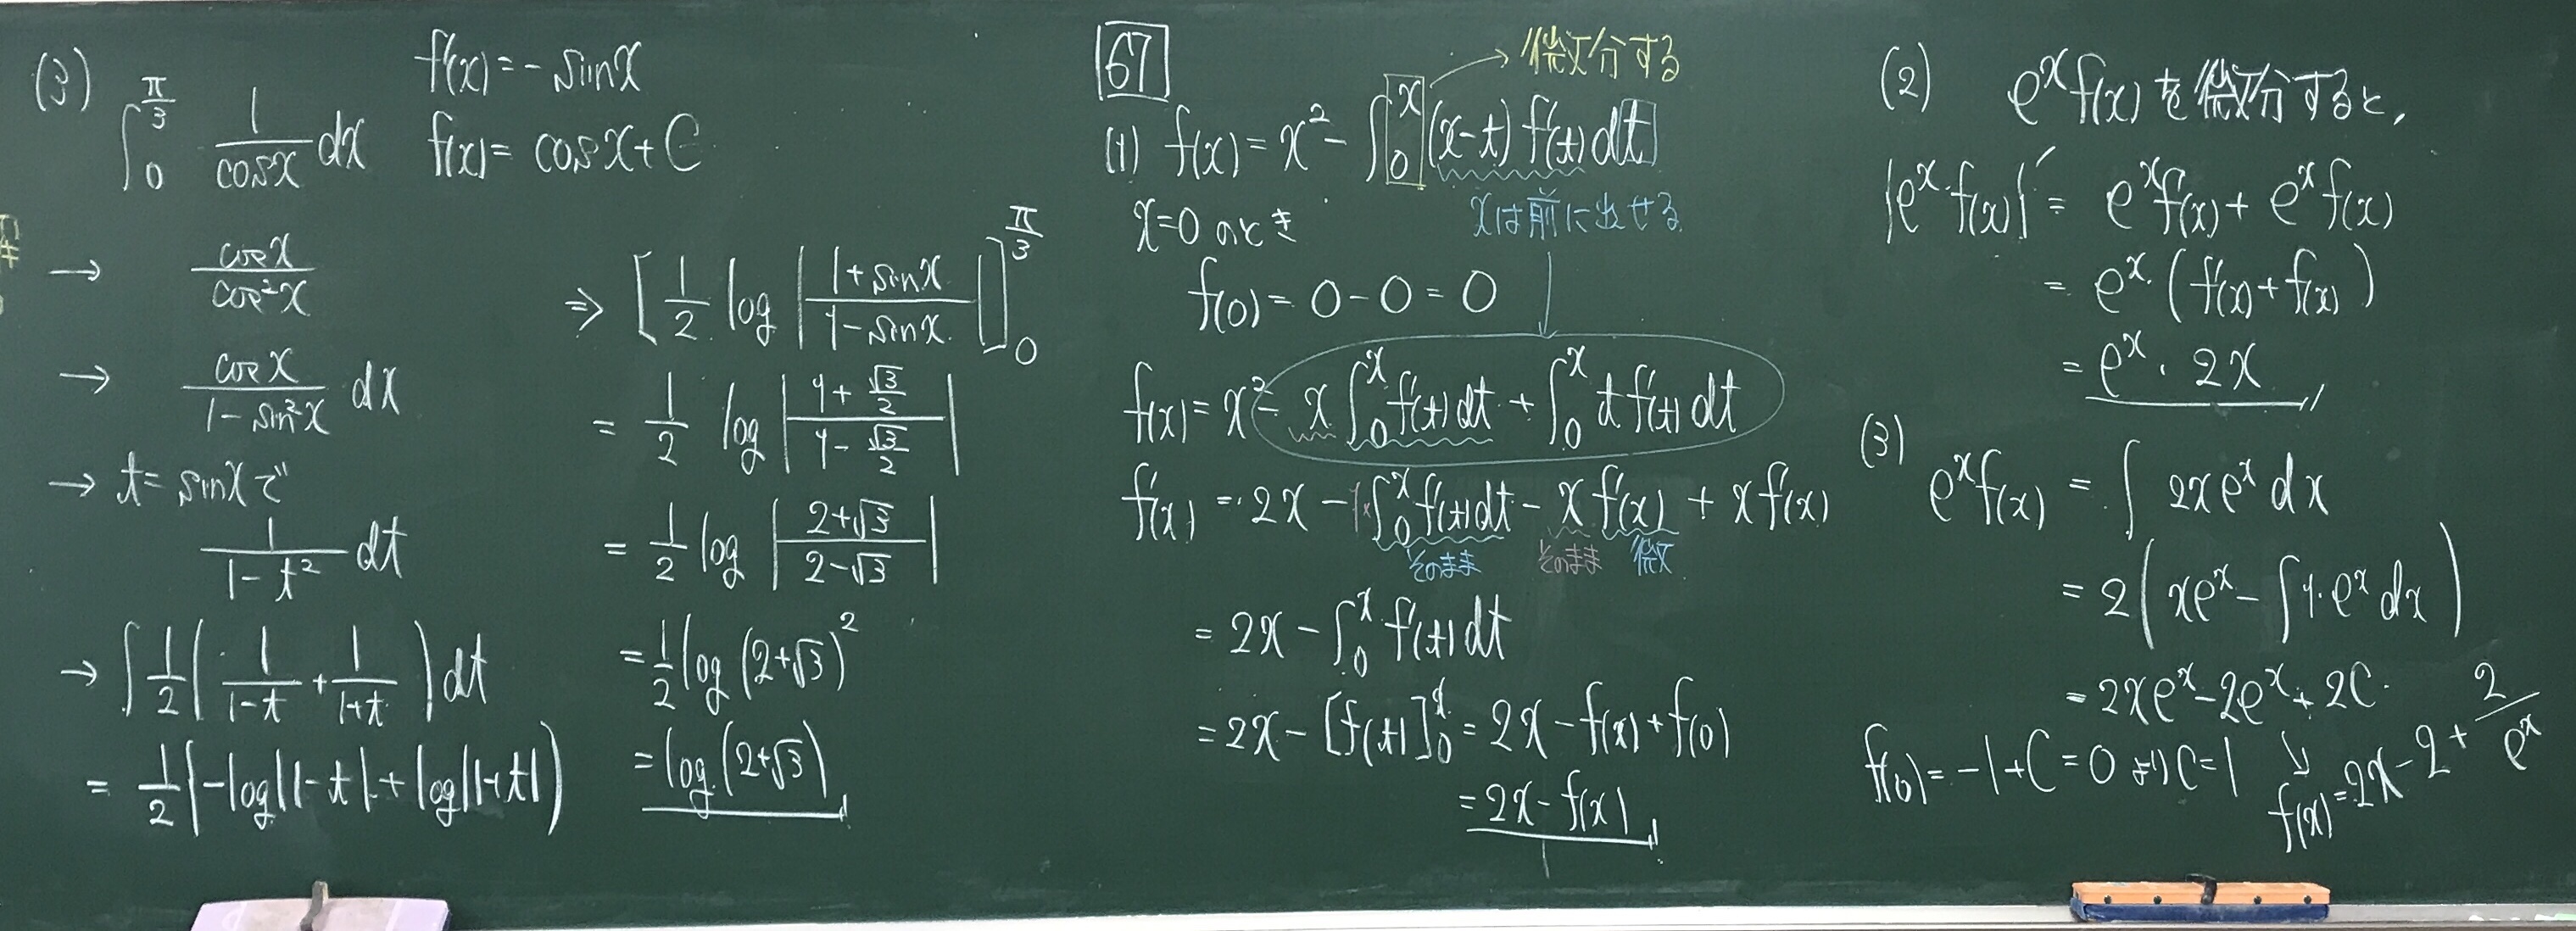 (3)
∫₀^{π/3} 1/cosx dx
f'(x) = -sinx
f(x) = cosx + C
→ cosx/cos²x
→ cosx/(1-sin²x) dx
→ t = sinxで
1/(1-t²) dt
→ ∫ 1/2 ( 1/(1-t) + 1/(1+t) ) dt
= 1/2 ( -log|1-t| + log|1+t| )
⇒ [ 1/2 log | (1+sinx)/(1-sinx) | ]₀^{π/3}
= 1/2 log | (1+√3/2)/(1-√3/2) |
= 1/2 log | (2+√3)/(2-√3) |
= 1/2 log (2+√3)²
= log (2+√3)
67
微分する
(1) f(x) = x² - ∫₀^x (x-t) f'(t) dt
xは前に出せる
x=0 のとき
f(0) = 0 - 0 = 0
f(x) = x² - x ∫₀^x f'(t) dt + ∫₀^x t f'(t) dt
f'(x) = 2x - 1× ∫₀^x f'(t) dt - x f'(x) + x f'(x)
そのまま そのまま 微
= 2x - ∫₀^x f'(t) dt
= 2x - [f(t)]₀^x = 2x - f(x) + f(0)
= 2x - f(x)
(2) e^x f(x) を微分すると,
{e^x·f(x)}' = e^x f(x) + e^x f'(x)
= e^x · (f'(x) + f(x))
= e^x · 2x
(3)
e^x f(x) = ∫ 2xe^x dx
= 2 ( xe^x - ∫ 1·e^x dx )
= 2xe^x - 2e^x + 2C.
f(0) = -1 + C = 0 より C = 1
↘ f(x) = 2x - 2 + 2/e^x